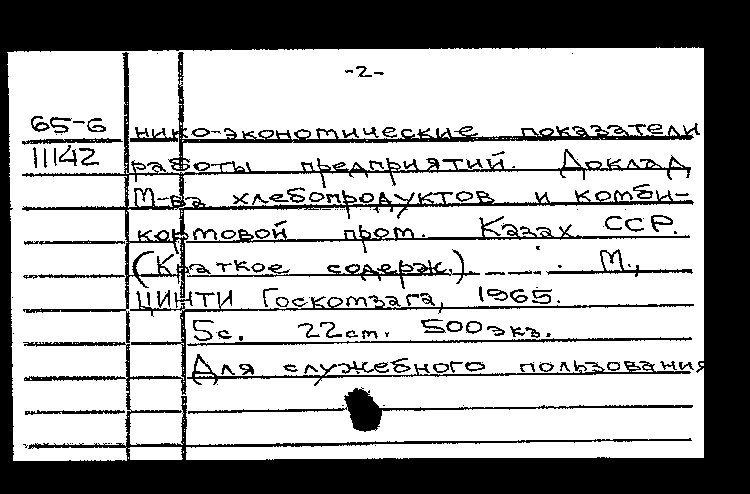 -2-
65-6 нико-экономические показатели
11142 работы предприятий. Доклад
М-ва хлебопродуктов и комби-
кормовой пром. Казах. ССР.
(Краткое содерж.). М.,
ЦИНТИ Госкомзага, 1965.
5с. 22см. 500экз.
Для служебного пользования